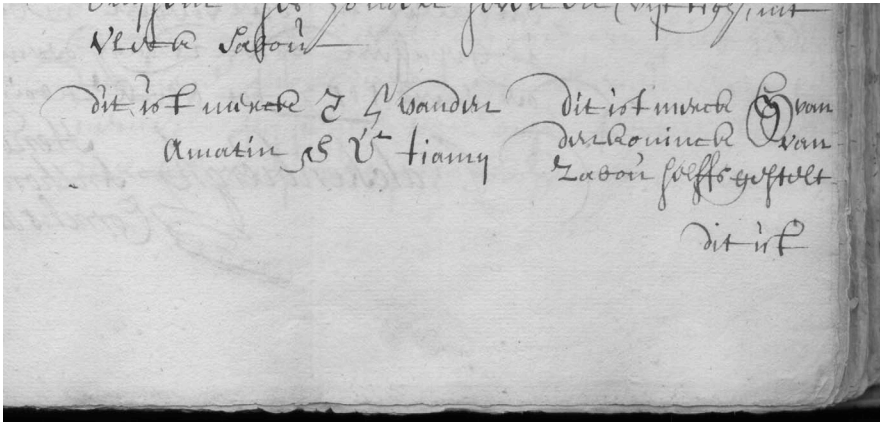 vleck Sabou
dit ist merck vanden
Amatin tiamy
dit ist merck van
den koninck van
Zabou selffs gestelt
dit ist